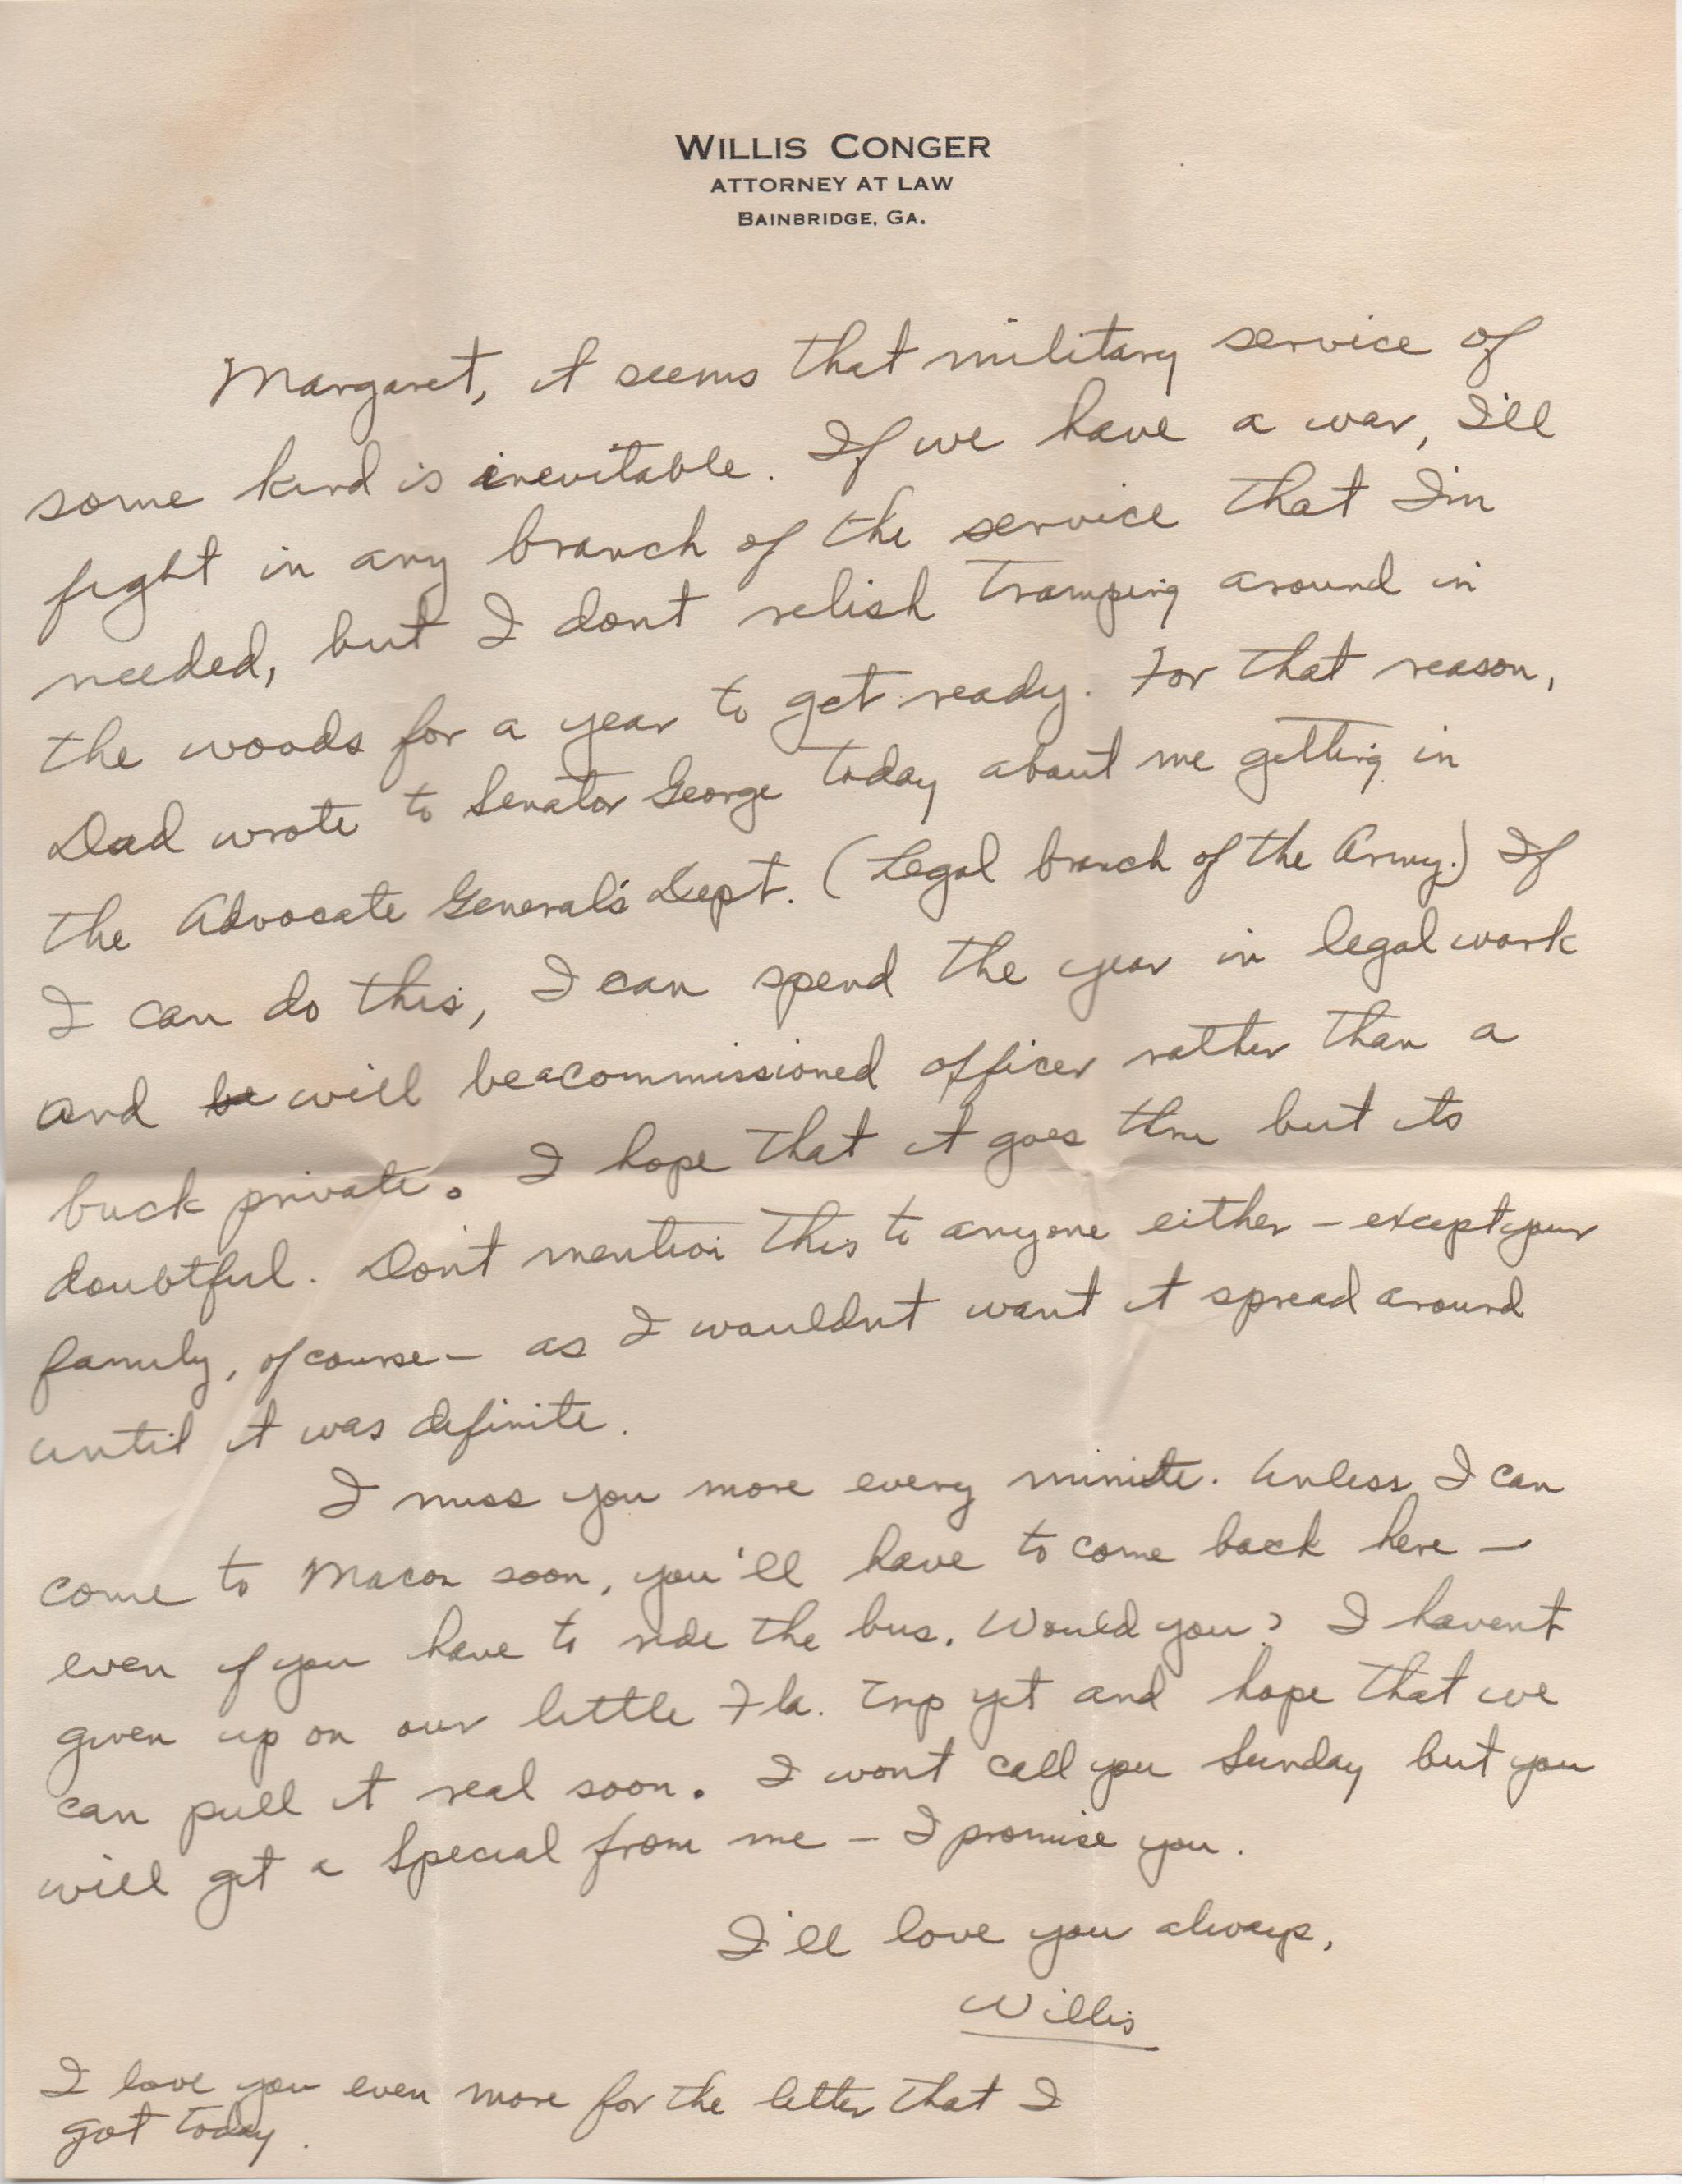 WILLIS CONGER
ATTORNEY AT LAW
BAINBRIDGE, GA.
Margaret, it seems that military service of
some kind is inevitable. If we have a war, I'll
fight in any branch of the service that I'm
needed, but I dont relish tramping around in
the woods for a year to get ready. For that reason,
Dad wrote to Senator George today about me getting in
the Advocate General's Dept. (Legal branch of the Army.) If
I can do this, I can spend the year in legal work
and be will be a commissioned officer rather than a
buck private. I hope that it goes thru but its
doubtful. Don't mention this to anyone either – except your
family, of course – as I wouldnt want it spread around
until it was definite.
I miss you more every minute. Unless I can
come to Macon soon, you'll have to come back here –
even if you have to ride the bus. Would you? I havent
given up on our little Fla. trip yet and hope that we
can pull it real soon. I wont call you Sunday but you
will get a Special from me – I promise you.
I'll love you always,
Willis
I love you even more for the letter that I
got today.